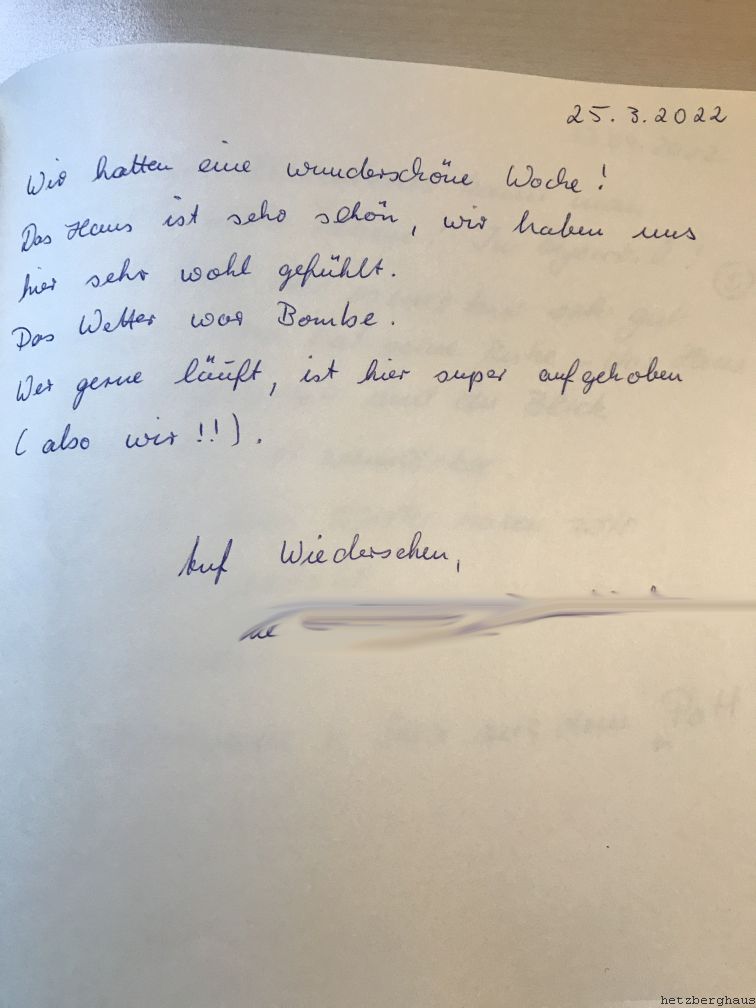 25.3.2022
Wir hatten eine wunderschöne Woche!
Das Haus ist sehr schön, wir haben uns
hier sehr wohl gefühlt.
Das Wetter war Bombe.
Wer gerne läuft, ist hier super aufgehoben
(also wir!!).
Auf Wiedersehen,
hetzberghaus